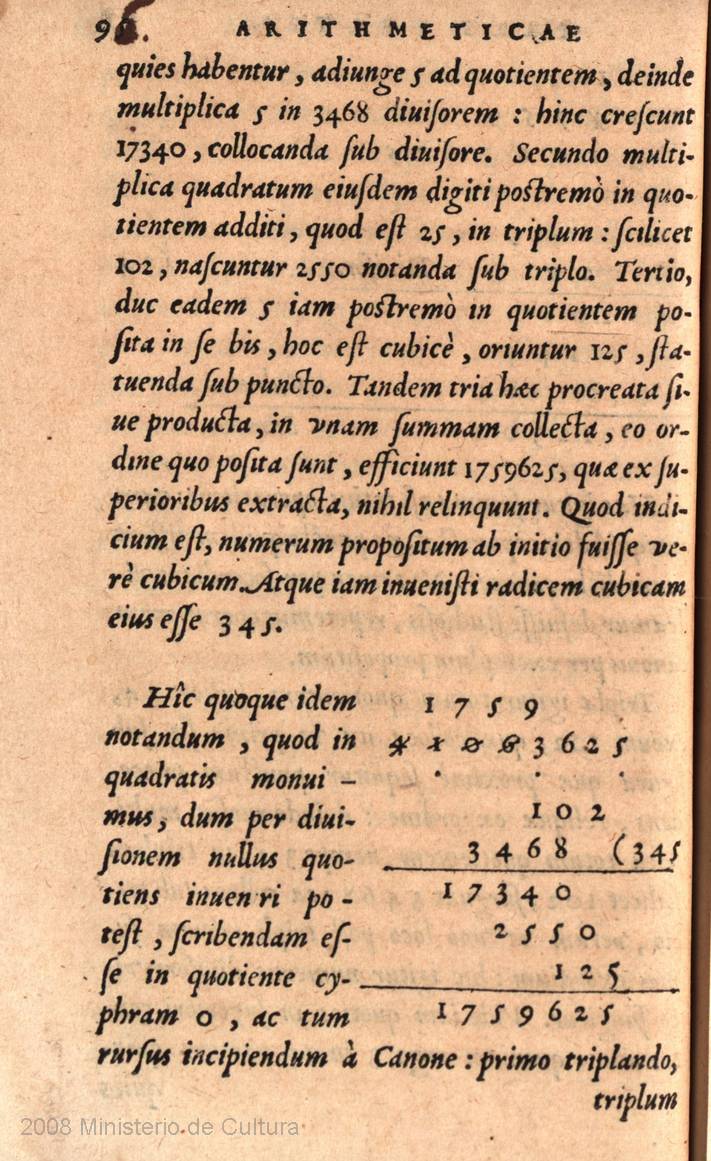 ARITHMETICAE
quies habentur, adiunge 5 ad quotientem, deinde
multiplica 5 in 3468 diuiſorem : hinc creſcunt
17340, collocanda ſub diuiſore. Secundo multi-
plica quadratum eiuſdem digiti poſtremò in quo-
tientem additi, quod eſt 25, in triplum : ſcilicet
102, naſcuntur 2550 notanda ſub triplo. Tertio,
duc eadem 5 iam poſtremò in quotientem po-
ſita in ſe bis, hoc eſt cubicè, oriuntur 125, ſta-
tuenda ſub puncto. Tandem tria hæc procreata ſi-
ue producta, in vnam ſummam collecta, eo or-
dine quo poſita ſunt, efficiunt 1759625, quæ ex ſu-
perioribus extracta, nihil relinquunt. Quod indi-
cium eſt, numerum propoſitum ab initio fuiſſe ve-
rè cubicum. Atque iam inueniſti radicem cubicam
eius eſſe 345.
Hîc quoque idem
notandum, quod in
quadratis monui-
mus, dum per diui-
ſionem nullus quo-
tiens inueniri po-
teſt, ſcribendam eſ-
ſe in quotiente cy-
phram 0, ac tum
1759
3625
102
3468 (345
17340
2550
125
1759625
rurſus incipiendum à Canone : primo triplando,
triplum
2008 Ministerio de Cultura